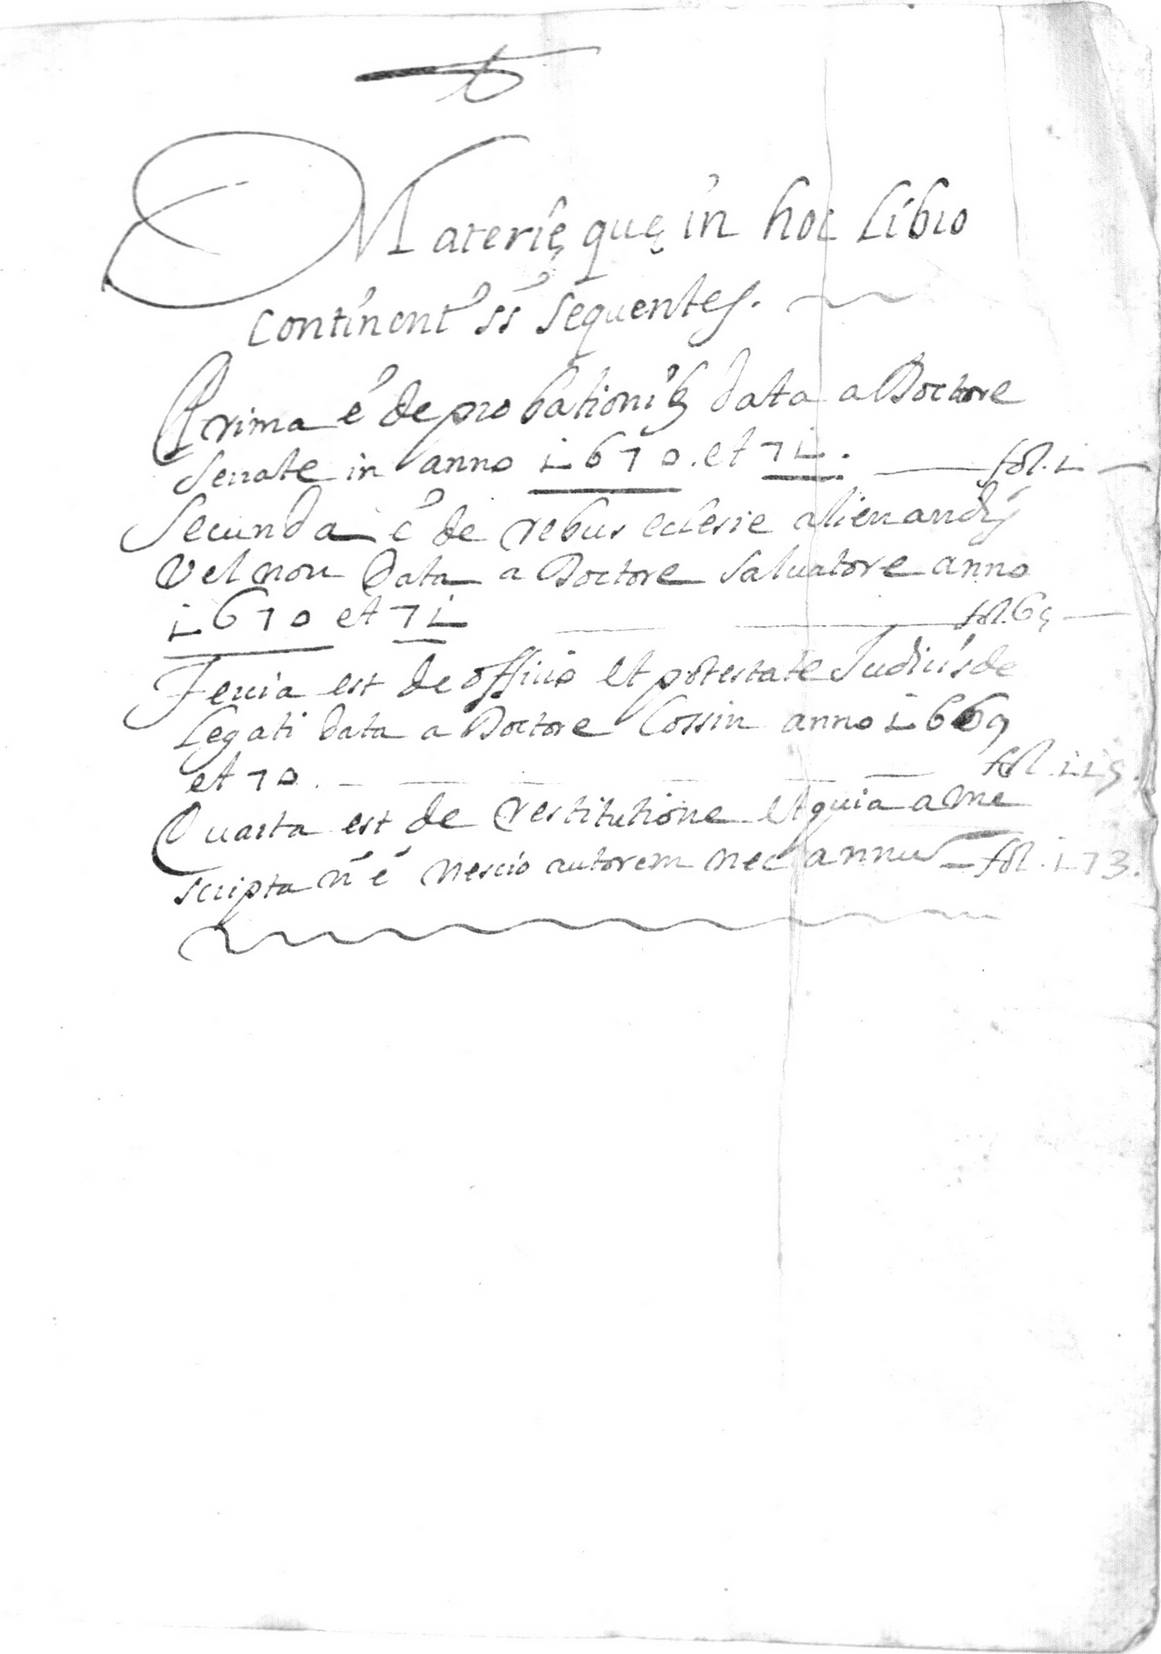 Materię quę in hoc libro
continent' ss̃ sequentes.
Prima ẽ de probationib9 data a Doctore
Serrate in anno 1670. et 71. fol. 1
Secunda ẽ de rebus eclesie alienandis
vel non data a Doctore Salvatore anno
1670 et 71 fol. 65
Tercia est de officio et potestate Iudicis de
legati data a Doctore Cossin anno 1669
et 70. fol. 115.
Quarta est de restitutione et quia a me
scripta ñ ẽ nescio autorem nec annu fol. 173.